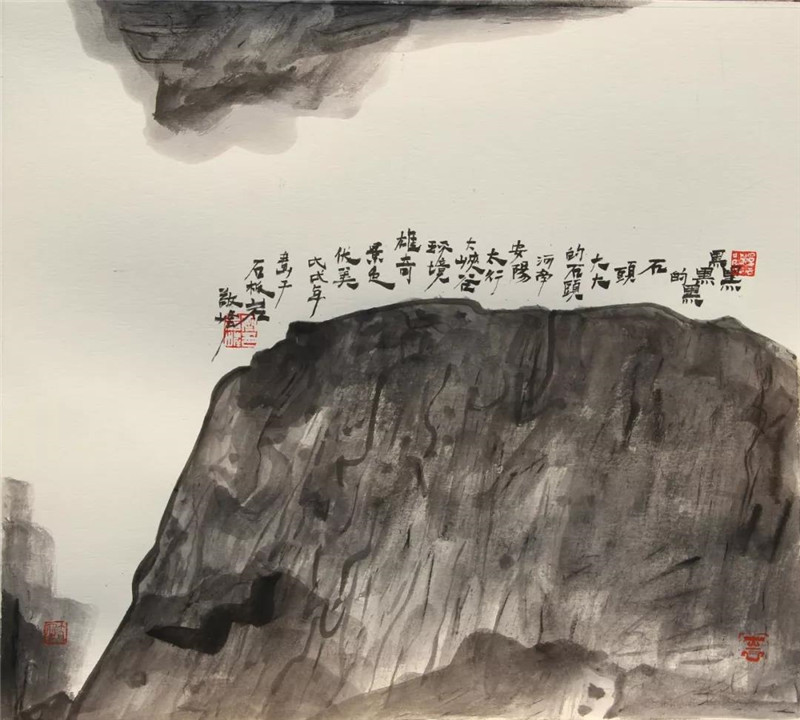 黑
黑
黑
黑
的
石
頭
大大
的石頭
河南
安陽
太行
大峽谷
环境
雄奇
景色
优美
戊戌年
于
石板岩